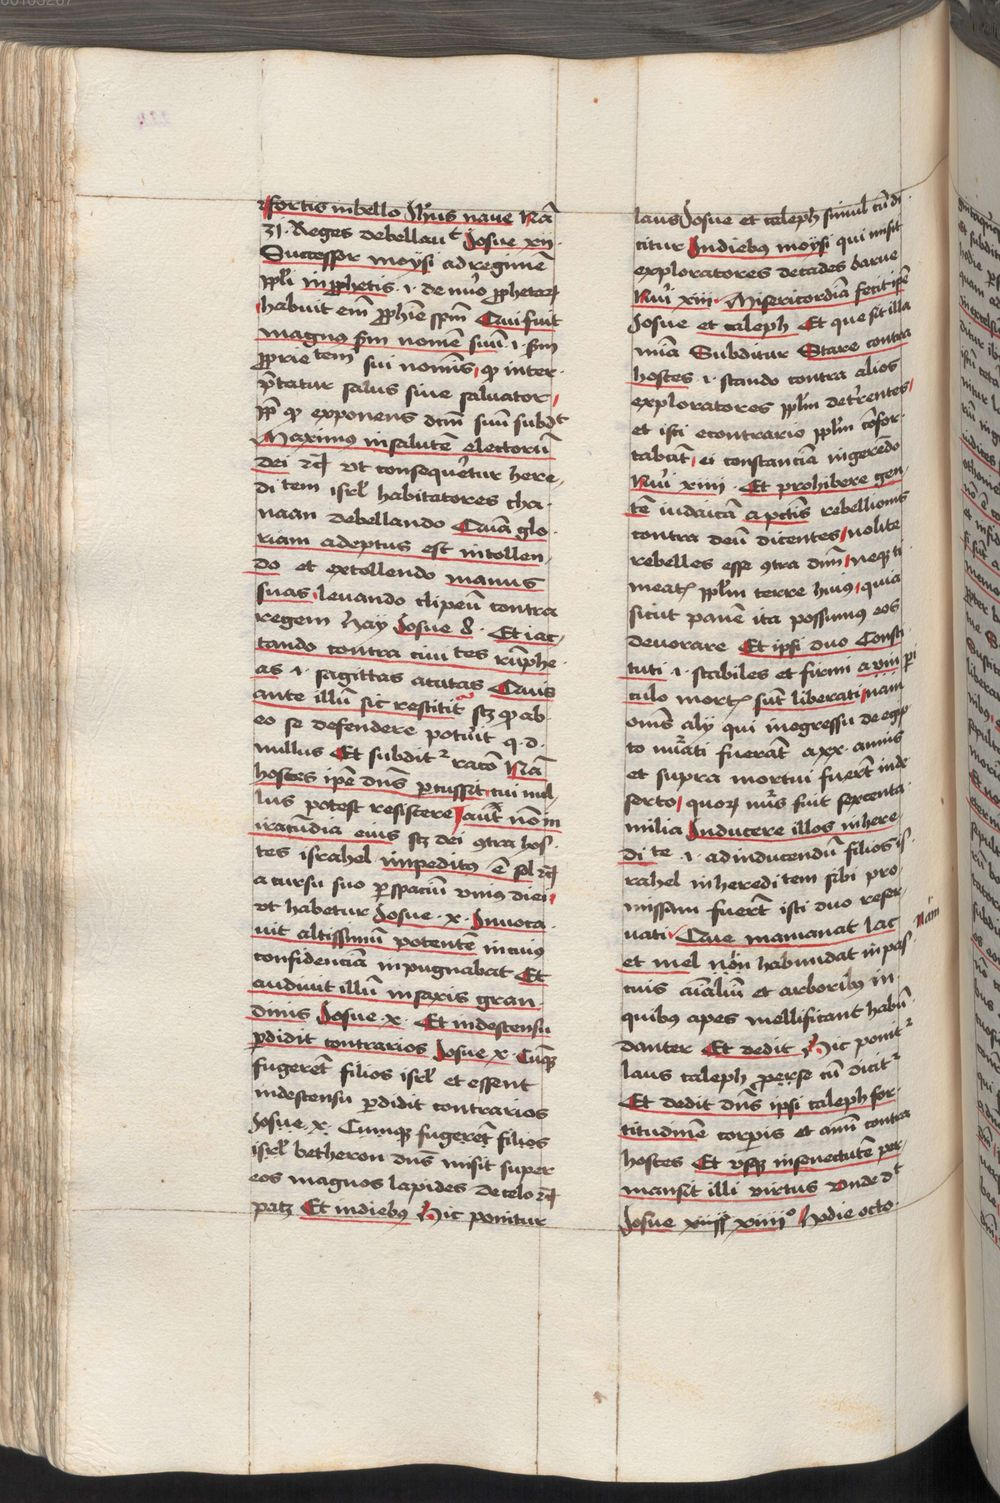 fortis in bello Ih'us naue Nā
31 · Reges debellauᵗ Josue xij ·
Successor moysi ad regimē
ppl'i in p̄phetis · i · de nūo p̄phetaꝝ
habuit em̄ p̄phē sp̄m Qui fuit
magnus s̄m nomē suū · i · s̄m
p̄prietatem sui nomīs qꝫ inter ·
p̄tatur salus siue saluator
exponens dc̄m suū subdᵗ
Maximus in salutē electorū
dei ut consequeretur here
ditem isrl' habitatores cha ·
naan debellando Quā glo
riam adeptus est in tollen
do et extollendo manus
suas leuando clipeū contra
regem hay Josue 8 · Et iac
tando contra ciuitates rūphe
as · i · sagittas acutas Quis
ante illū sic restitit scꝫ qꝫ ab
eo se defendere potuit q · d ·
nullus Et subditʳ racō Nā
hostes ip̄e dn̄s percussit cui nul
lus potest resistere / aut nō in
iracūdia eius scꝫ dei ꝯtra hos ·
tes israhel impeditus ē sol
a cursu suo per spaciū vnius diei
ut habetur Josue · x · Inuoca
uit altissimū potentē in cuius
confidenciā inpugnabat Et
audiuit illū in saxis gran
dinis Josue · x · Et in descensu
ꝑdidit contrarios Josue x Cūqꝫ
fugerēt filios isrl' et essent
in descensu ꝑdidit contrarios
Josue x · Cumqꝫ fugerēt filios
isrl' betheron dn̄s misit super
eos magnos lapides de celo
patꝫ Et in diebus Hic ponitur
laus Josue et caleph simul cū di
citur In diebus moysi qui misit
exploratores de cades barne
Nūi xiij · Misericordiā fecit ip̄e
Josue et caleph Et que sit illa
mīa Subditur Stare contra
hostes · i · stando contra alios
exploratores ppl'm det'rentes
et isti econtrario ppl'm cōfor
tabāt ei constanciā ingerēdo
Nūi xiiij · Et prohibere gen
tē iudaicā a pctīs rebellionis
contra deū dicentes / nolite
rebelles esse ꝯtra dn̄m neqꝫ ti
meatꝭ ppl'm terre huius quia
sicut panē ita possumus eos
deuorare Et ipsi duo Consti
tuti · i · stabiles et firmi a ꝑi
culo mortꝭ sūt liberati nam
omēs alij qui in egressu de egip
to nūati fuerāt a xx · annis
et supra mortui fuerūt in de
serto quoꝝ nūs fuit sexcenta
milia Inducere illos in here
di te · i · ad inducendū filios is
rahel in hereditem sibi pro
missam fuerūt isti duo reser
uati Que mamanat lac Nam
et mel nōn habundat in pas
cuis aīaliū et arboribus in
quibus apes mellificant habū
danter Et dedit Hic ponitʳ
laus caleph perse cū dicitʳ
Et dedit dn̄s ipsi caleph for
titudinē corpis et aīmi contra
hostes Et vsqꝫ in senectutē per
mansit illi virtus Vnde dᵗ
Josue xiiijº hodie octo